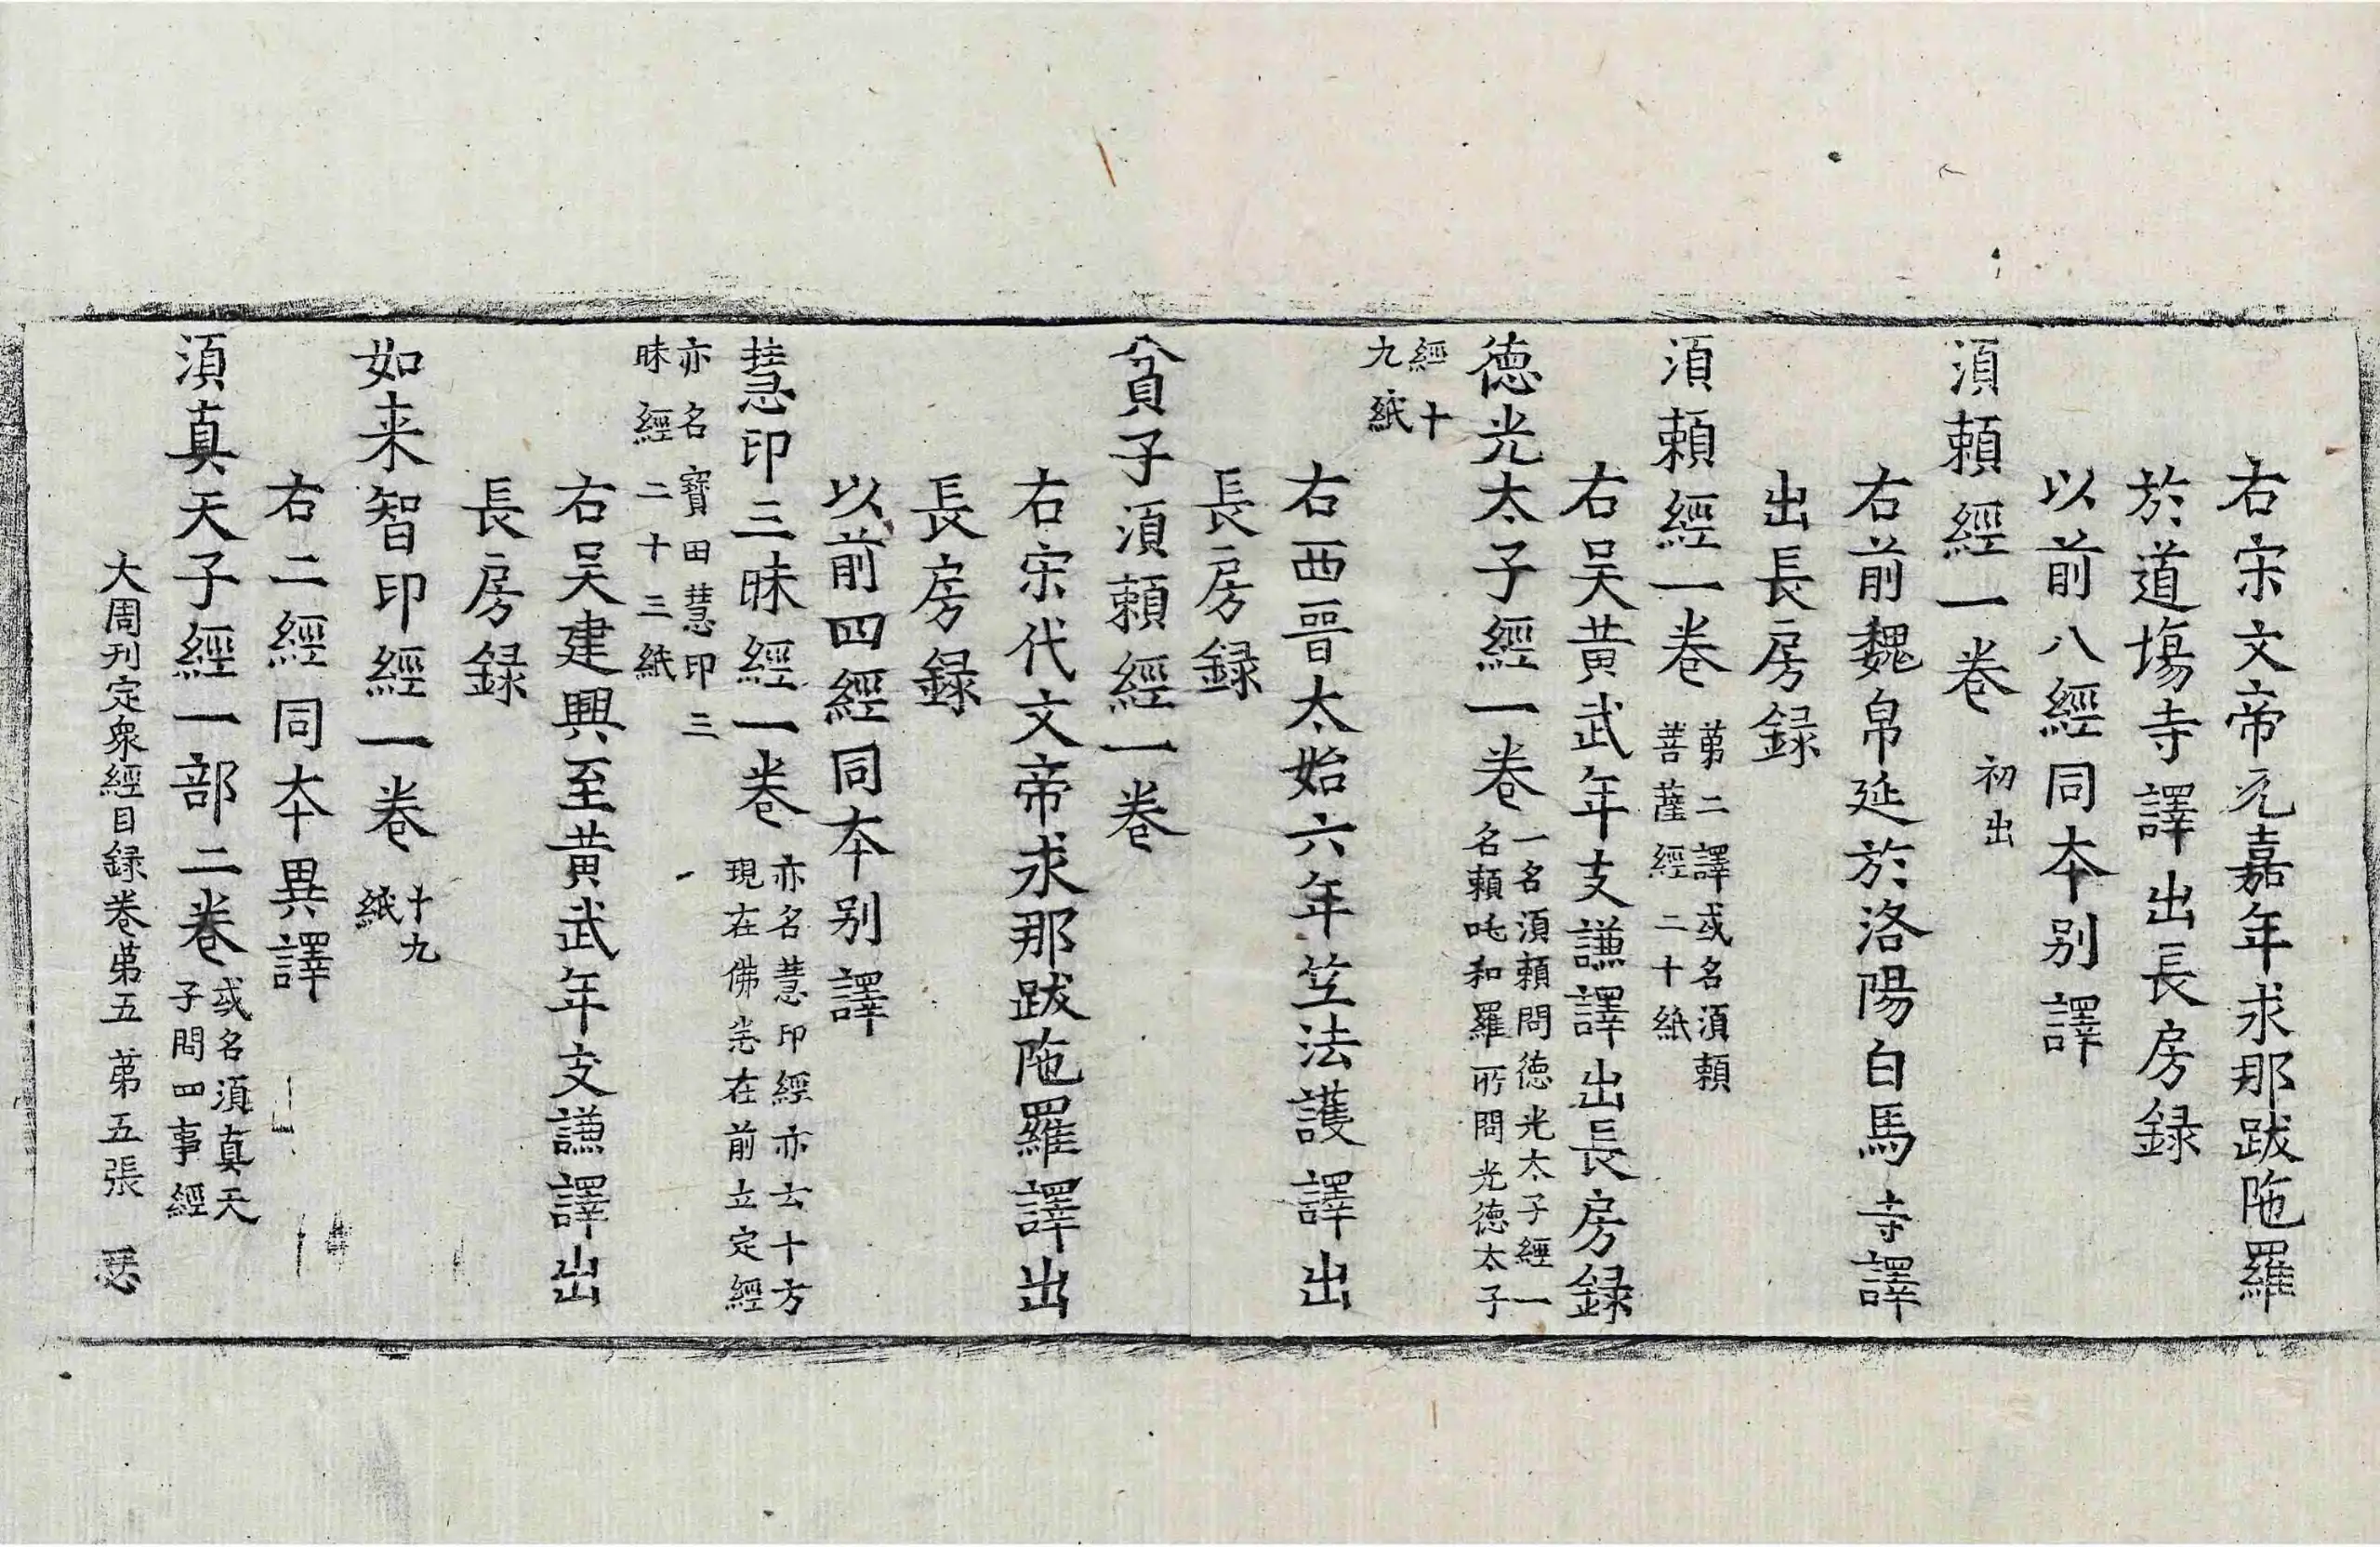 右宋文帝元嘉年求那跋陁羅
於道場寺譯出長房録
以前八經同本别譯
湏頼經一卷 初出
右前魏帛延於洛陽白馬寺譯
出長房録
湏頼經一卷 苐二譯或名湏頼
菩薩經二十紙
右吴黄武年支謙譯出長房録
德光太子經一卷 一名湏頼問德光太子經一
名頼吒和羅所問光德太子
經十
九紙
右西晉太始六年竺法護譯出
長房録
貧子湏頼經一卷
右宋代文帝求那跋陁羅譯出
長房録
以前四經同本别譯
慧印三昧經一卷 亦名慧印經亦云十方
現在佛悉在前立定經
亦名寶田慧印三
昧經二十三紙
右吴建興至黄武年支謙譯出
長房録
如来智印經一卷 十九
紙
右二經同本異譯
湏真天子經一部二卷 或名湏真天
子問四事經
大周刊定衆經目録卷苐五 苐五張 惡